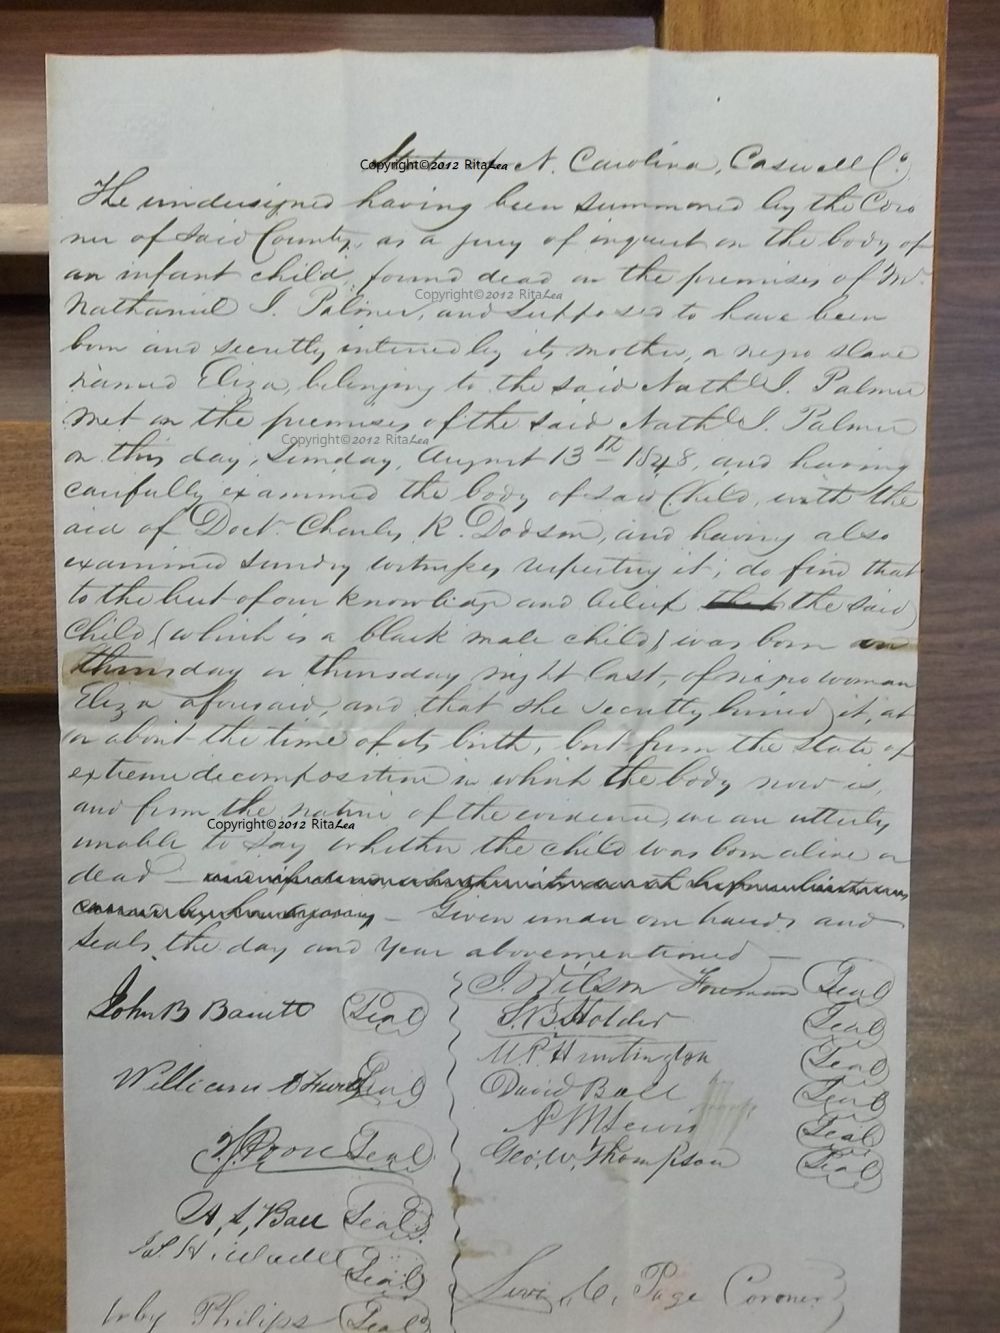 State of N. Carolina, Caswell Co.
Copyright©2012 RitaLea
The undersigned having been summoned by the Coro
ner of said County, as a jury of inquest on the body of
an infant child, found dead on the premises of Mr.
Copyright©2012 RitaLea
Nathaniel J. Palmer, and supposed to have been
born and secretly interred by its mother, a negro slave
named Eliza, belonging to the said Nathl J. Palmer
met on the premises of the said Nathl J. Palmer
Copyright©2012 RitaLea
on this day, Sunday, August 13th 1848, and having
carefully examined the body of said Child, with the
aid of Doct. Charles R. Dodson, and having also
examined sundry witnesses respecting it; do find that
to the best of our knowledge and belief that the said
Child (which is a black male child) was born on
thursday or thursday night last, of negro woman
Eliza aforesaid, and that she secretly buried it, at
or about the time of its birth, but from the state of
extreme decomposition in which the body now is,
and from the nature of the evidence, we are utterly
Copyright©2012 RitaLea
unable to say whether the child was born alive or
dead —
— Given under our hands and
seals the day and year abovementioned —
J. Wilson Foreman Seal
John B Barrett Seal
S. B. Holder Seal
M. P. Huntington Seal
William Seal
David Ball Seal
A M Lewis Seal
Seal
Geo. W. Thompson Seal
A. S. Ball Seal
Seal
Levi C. Page Coroner
Irby Philips Seal